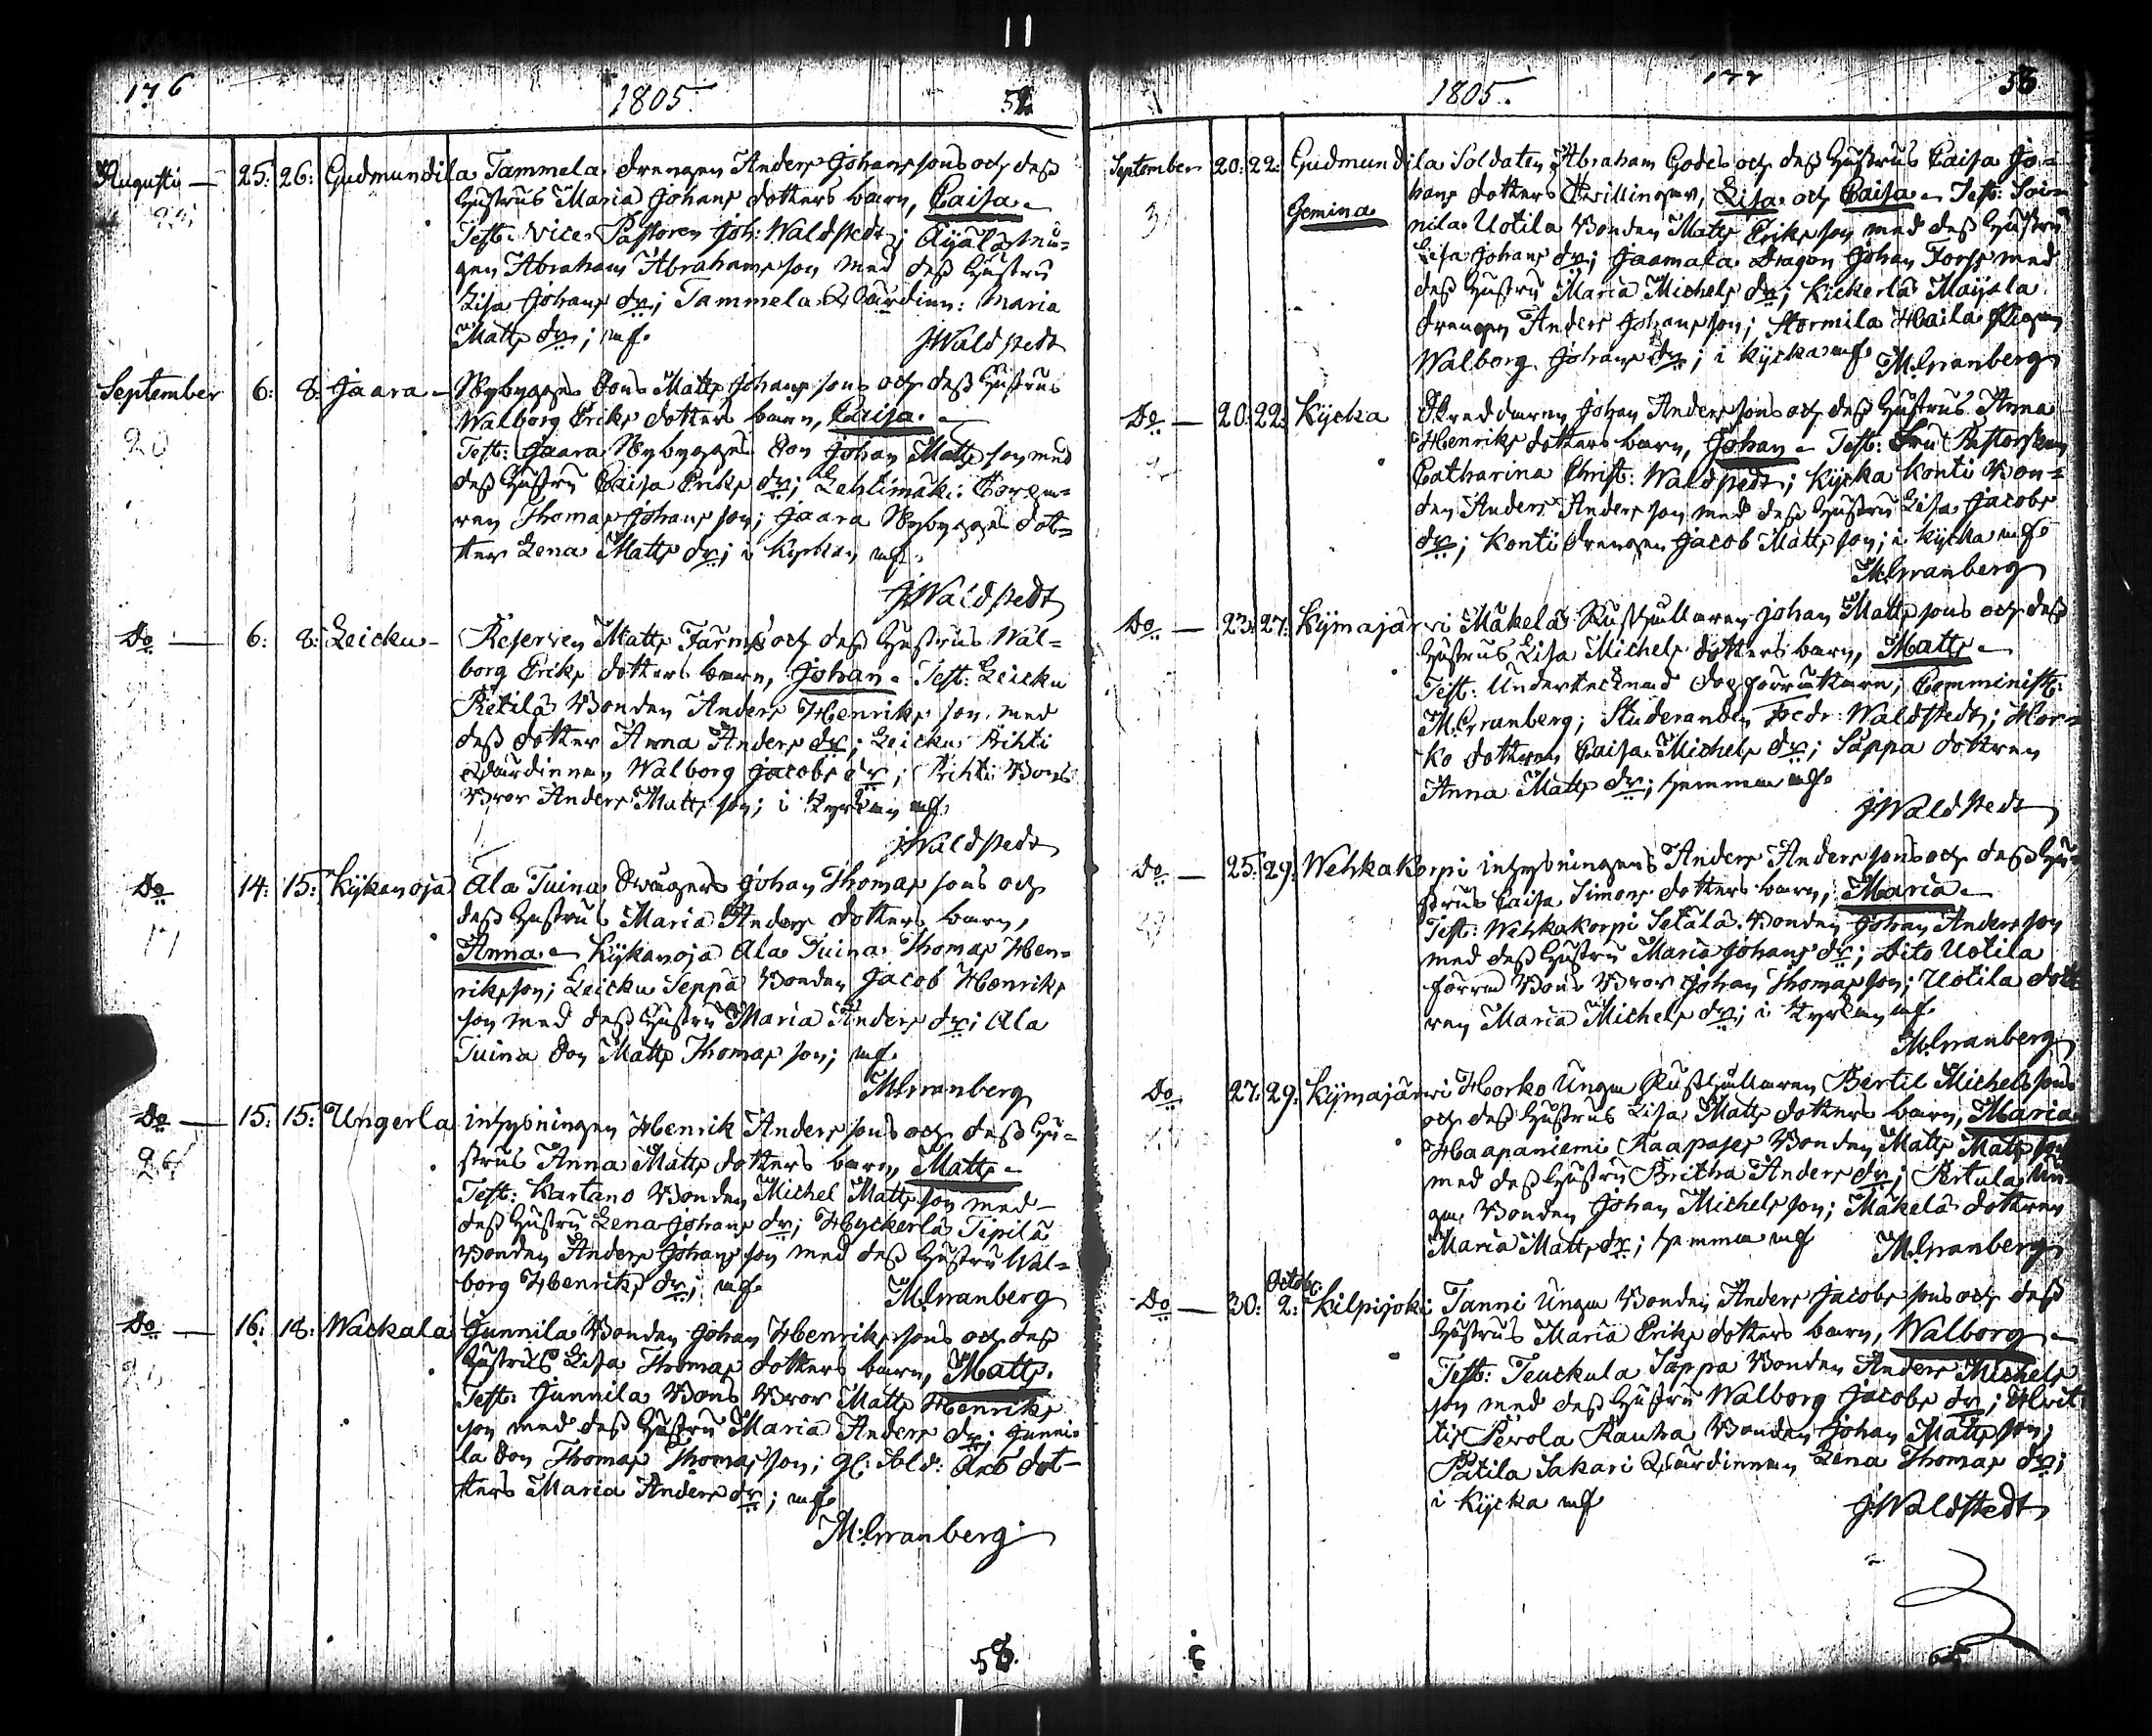 176
1805.
52
Augusti — 25: 26: Gudmundila Tammela drengen Anders Johans sons och dess
hustrus Maria Johans dotters barn, Caisa. —
Test: Vice Pastoren Joh: Waldstedt; Äijälä
Abraham Abrahams son med dess hustru
Lisa Johans dr; Tammela Wärdinn: Maria
Matts dr; mf.
J. Waldstedt
September 6: 8: Jaara — Nybygges Sons Matts Johans sons och dess hustrus
Walborg Eriks dotters barn, Caisa. —
Test: Jaara Nybygges Son Johan Matts son med
dess hustru Caisa Eriks dr; Lehtimäki
Thomas Johans son; Jaara Nybygges dot-
ter Lena Matts dr; i Kyrkan mf.
J. Waldstedt
Do — 6: 8: Leicku — Reserven Matts Farms och dess hustrus Wal-
borg Eriks dotters barn, Johan. Test: Leicku
Retilä Bonden Anders Henriks son med
dess dotter Anna Anders dr; Leicku Prihti
Wärdinnan Walborg Jacobs dr; Prihti Bons
Bror Anders Matts son; i Kyrkan mf.
J. Waldstedt
Do 14: 15: Kijkanoja Ala Tuina Swågers Johan Thomas sons och
dess hustrus Maria Anders dotters barn,
Anna. — Kijkanoja Ala Tuina Thomas Hen-
riks son; Leicku Seppä Bonden Jacob Henriks
son med dess hustru Maria Anders dr; Ala
Tuina Son Matts Thomas son; mf.
M. Granberg
Do — 15: 15: Ungerla inhysningen Henrik Anders sons och dess hu-
strus Anna Matts dotters barn, Matts —
Test: Kartano Bonden Michel Matts son med
dess hustru Lena Johans dr; Hyckerlä Tipilä
Bonden Anders Johans son med dess hustru Wal-
borg Henriks dr; mf.
M. Granberg
Do — 16: 18: Wackala Junnila Bonden Johan Henriks sons och dess
hustrus Lisa Thomas dotters barn, Matts.
Test: Junnila Bons Bror Matts Henriks
son med dess hustru Maria Anders dr; Junni-
la Son Thomas Thomas son; gl: Sold: dot-
ters Maria Anders dr; mf.
M. Granberg
58.
177
1805.
53
September 20: 22: Gudmundila Soldaten Abraham Godes och dess hustrus Caisa Jo-
Gemina hans dotters Twillingar, Lisa och Caisa — Test: Soi-
nila Uotila Bonden Matts Eriks son med dess hustru
Lisa Johans dr; Jaamala Dragon Johan Forss med
dess hustru Maria Michels dr; Kickerlä Maijala
drengen Anders Johans son; Stormila Haila Pigan
Walborg Johans dr; i Kijcka mf. M. Granberg
Do — 20: 22: Kijcka Skreddaren Johan Anders sons och dess hustrus Anna
Henriks dotters barn, Johan — Test: Fru Pastorskan
Catharina Christ: Waldstedt; Kijcka Konti Bon-
den Anders Anders son med dess hustru Lisa Jacobs
dr; Konti drengen Jacob Matts son; i Kijcka mf.
M. Granberg
Do — 23: 27: Kijmajärwi Mäkelä Rusthållaren Johan Matts sons och dess
hustrus Lisa Michels dotters barn, Matts —
Test: Undertecknad dopförrättare; Comminist:
M. Granberg; Studeranden Fredr: Waldstedt; Hor-
ko dottren Caisa Michels dr; Säppä dottren
Anna Matts dr; hemma mf.
J. Waldstedt
Do — 25: 29: Wehkakorpi inhysningens Anders Anders sons och dess hu-
strus Caisa Simons dotters barn, Maria —
Test: Wehkakorpi Setälä Bonden Johan Anders son
med dess hustru Maria Johans dr; dito Uotila
förra Bons Bror Johan Thomas son; Uotila dott-
ren Maria Michels dr; i Kyrkan mf.
M. Granberg
Do 27: 29: Kijmajärwi Horko Unga Rusthållaren Bertil Michels sons
och dess hustrus Lisa Matts dotters barn, Maria
Haapaniemi Raapases Bonden Matts Matts son
med dess hustru Britha Anders dr; Pertula Un-
ga Bonden Johan Michels son; Mäkelä dottren
Maria Matts dr; hemma mf M. Granberg
Do — 30: Octobr: 2: Kilpijoki Tanni Unga Bonden Anders Jacobs sons och dess
hustrus Maria Eriks dotters barn, Walborg —
Test: Teuckula Säppä Bonden Anders Michels
son med dess hustru Walborg Jacobs dr; Hvit-
tis Perola Rauha Bonden Johan Matts son;
Pätila Sakari Wärdinnan Lena Thomas dr;
i Kijcka mf J. Waldstedt